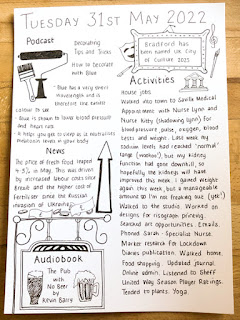 TUESDAY 31ST MAY 2022
Podcast
Decorating
Tips and Tricks
How to Decorate
with Blue
BRADFORD HAS
BEEN NAMED UK CITY
OF CULTURE 2025
Activities
• Blue has a very short
wavelength and is
therefore the easiest
colour to see
• Blue is shown to lower blood pressure
and heart rate
• It helps you get to sleep as it neutralises
melatonin levels in your body
House jobs
Walked into town to Savita Medical
Appointment with Nurse Lynn and
Nurse Kitty (shadowing Lynn) for
blood pressure, pulse, oxygen, blood
tests and weight. Last week my
sodium levels had reached 'normal'
range (woohoo!), but my kidney
function had gone downhill, so
hopefully the kidneys will have
improved this week. I gained weight
again this week, but a manageable
amount so I'm not freaking out (yet!)
Walked to the studio. Worked on
designs for risograph printing.
Searched art opportunities. Emails.
Phoned Sarah - Specialist Nurse
Market research for Lockdown
Diaries publication. Walked home.
Food shopping. Updated journal.
Online admin. Listened to Sheff
United Way Season Player Ratings.
Tended to plants. Yoga.
News
The price of fresh food jumped
4.3% in May. This was driven
by increased labour costs since
Brexit and the higher cost of
fertiliser since the Russian
invasion of Ukraine
Audiobook
The Pub
with No
Beer by
Kevin Barry